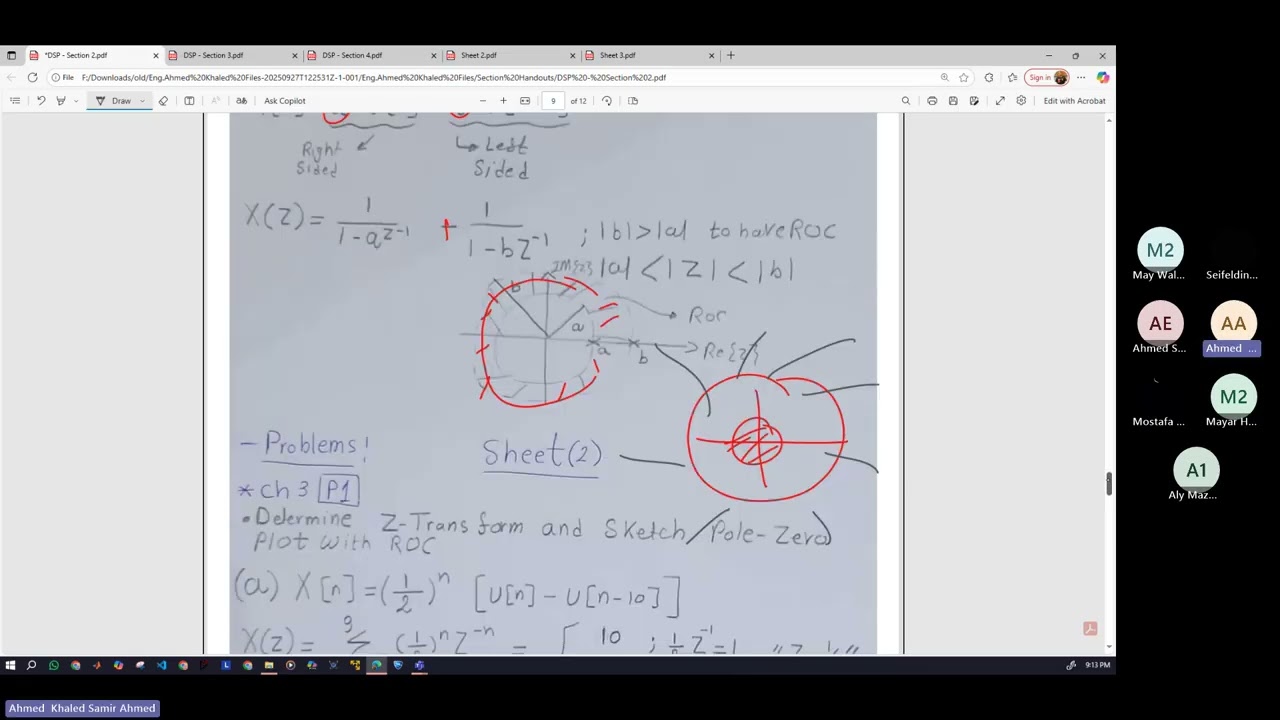 *DSP - Section 2.pdf
DSP - Section 3.pdf
DSP - Section 4.pdf
Sheet 2.pdf
Sheet 3.pdf
File
F:/Downloads/old/Eng.Ahmed%20Khaled%20Files-20250927T122531Z-1-001/Eng.Ahmed%20Khaled%20Files/Section%20Handouts/DSP%20-%20Section%202.pdf
Sign in
Draw
Ask Copilot
9 of 12
Edit with Acrobat
Right
Sided
Left
Sided
X(Z) = 1/(1-aZ⁻¹) + 1/(1-bZ⁻¹) ; |b|>|a| to have ROC
IM{z} |a| < |Z| < |b|
b
a
Roc
a
b
Re{Z}
- Problems!
Sheet(2)
* Ch 3 P1
• Determine Z-Transform and Sketch (Pole-Zero)
Plot with ROC
(a) X[n] = (1/2)ⁿ [U[n] - U[n-10]]
X(Z) = 9 Σ (1/2)ⁿ Z⁻ⁿ = [ 10 ; 1/2 Z⁻¹=1
May Wal...
Seifeldin...
Ahmed S...
Ahmed ...
Mostafa ...
Mayar H...
Aly Maz...
M2
AE
AA
M2
A1
9:13 PM
Ahmed Khaled Samir Ahmed